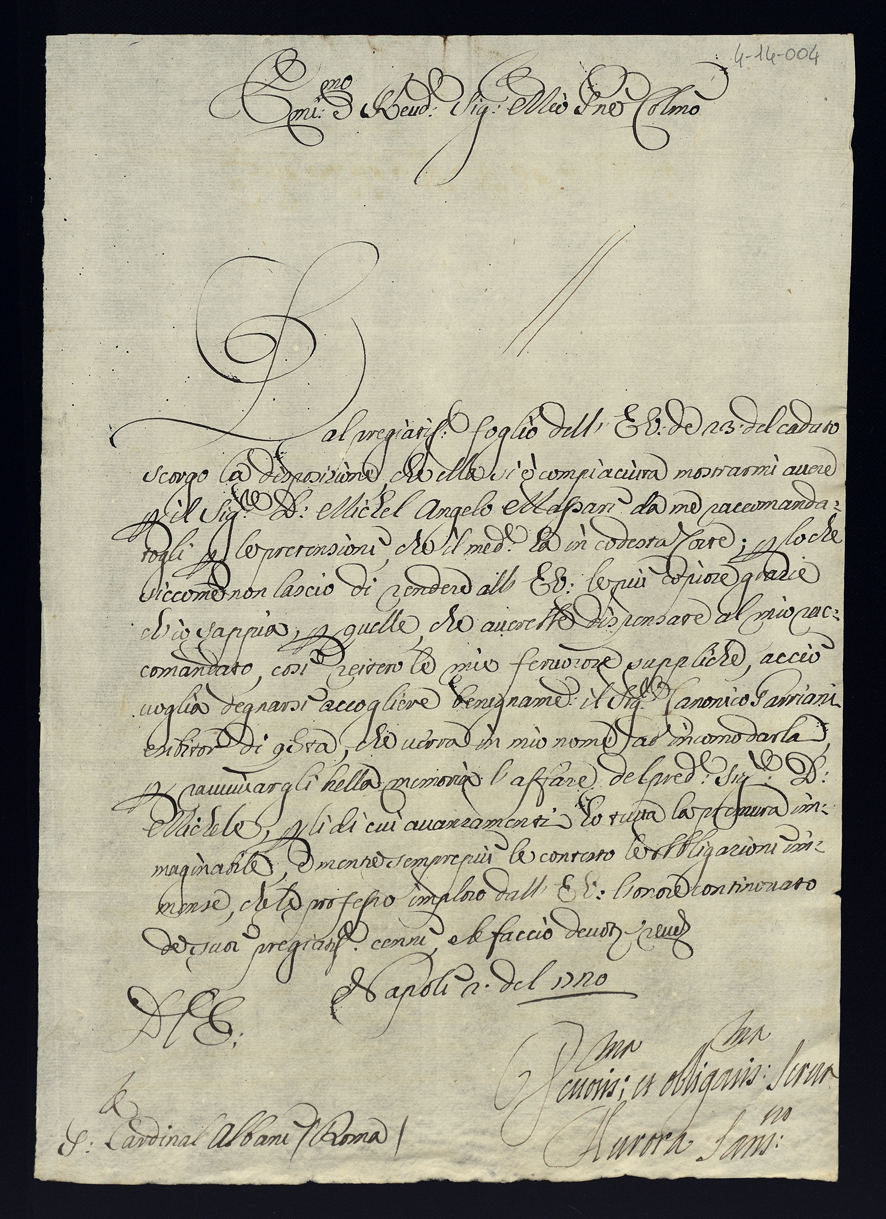 4-14-004
Emi:mo e Reud: Sig: Mio Pne Colmo
Dal pregiatis: foglio dell' E.V: de 23. del caduto
scorgo la disposizione, che ella si è compiaciuta mostrarmi avere
p il Sig:re D: Michel Angelo Massari da me raccomanda=
togli p le pretensioni, che il med: ha in codesta Corte; p lo che
siccome non lascio di rendere all' E.V: le più copiose grazie
ch'io sappia, p quelle, che averette dispensare al mio rac=
comandato, così reitero le mie fervorose suppliche, acciò
voglia degnarsi accogliere benigname: il Sig:re Canonico
esibitor di qsta, che verrà in mio nome ad incomodarla,
p ravvivargli nella memoria l'affare del pred: Sig:re D:
Michele, p li di cui avanzamenti ho tutta la premura im=
maginabile, e mentre semprepiù le contesto le obbligazioni im=
mense, che le professo imploro dall' E.V: l'onore continovato
de suoi pregiatis: cenni, e le faccio devot: reuer
Napoli 2. del 1720
D V E:
S:r Cardinal Albani / Roma /
Deuotis:ma et obligatis:ma Serua
Aurora Sans:no